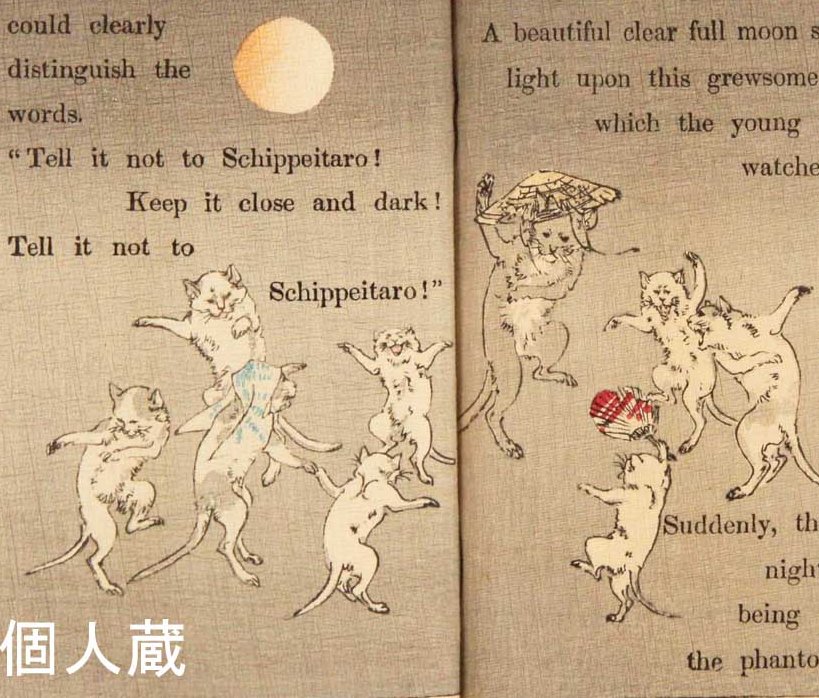 could clearly
distinguish the
words.
“Tell it not to Schippeitaro!
Keep it close and dark!
Tell it not to
Schippeitaro!”
A beautiful clear full moon s
light upon this grewsome
which the young
watche
Suddenly, th
nigh
being
the phanto
個人蔵